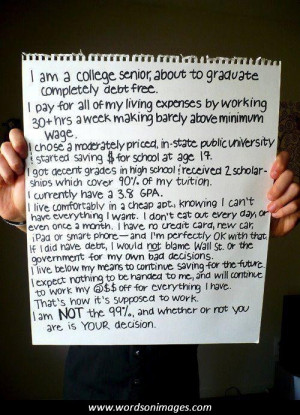 I am a college senior, about to graduate
completely debt free.
I pay for all of my living expenses by working
30+ hrs a week making barely above minimum
wage.
I chose a moderately priced, in-state public university
& started saving $ for school at age 17.
I got decent grades in high school & received 2 scholar-
ships which cover 90% of my tuition.
I currently have a 3.8 GPA.
I live comfortably in a cheap apt., knowing I can't
have everything I want. I don't eat out every day, or
even once a month. I have no credit card, new car,
iPad or smart phone—and I'm perfectly OK with that.
If I did have debt, I would not blame Wall St. or the
government for my own bad decisions.
I live below my means to continue saving for the future.
I expect nothing to be handed to me, and will continue
to work my @$$ off for everything I have.
That's how it's supposed to work.
I am NOT the 99%, and whether or not you
are is YOUR decision.
www.wordsonimages.com